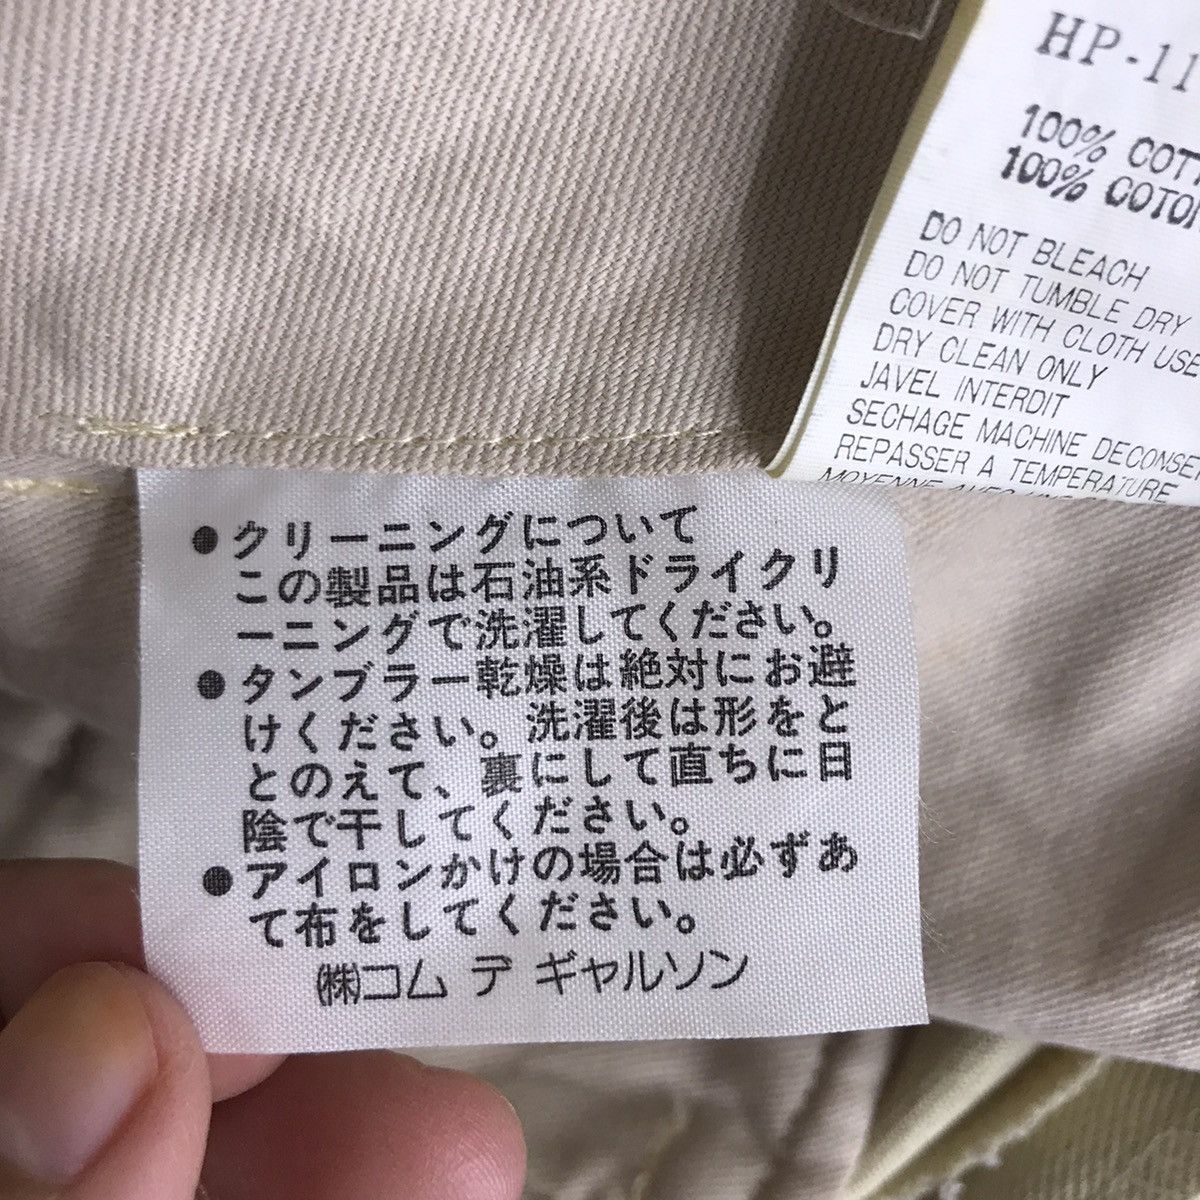 HP-11
100% COTT
100% COTON
DO NOT BLEACH
DO NOT TUMBLE DRY
COVER WITH CLOTH USE
DRY CLEAN ONLY
JAVEL INTERDIT
SECHAGE MACHINE DECONSE
REPASSER A TEMPERATURE
●クリーニングについて
この製品は石油系ドライクリ
ーニングで洗濯してください。
●タンブラー乾燥は絶対にお避
けください。洗濯後は形をと
とのえて、裏にして直ちに日
陰で干してください。
●アイロンかけの場合は必ずあ
て布をしてください。
㈱コム デ ギャルソン